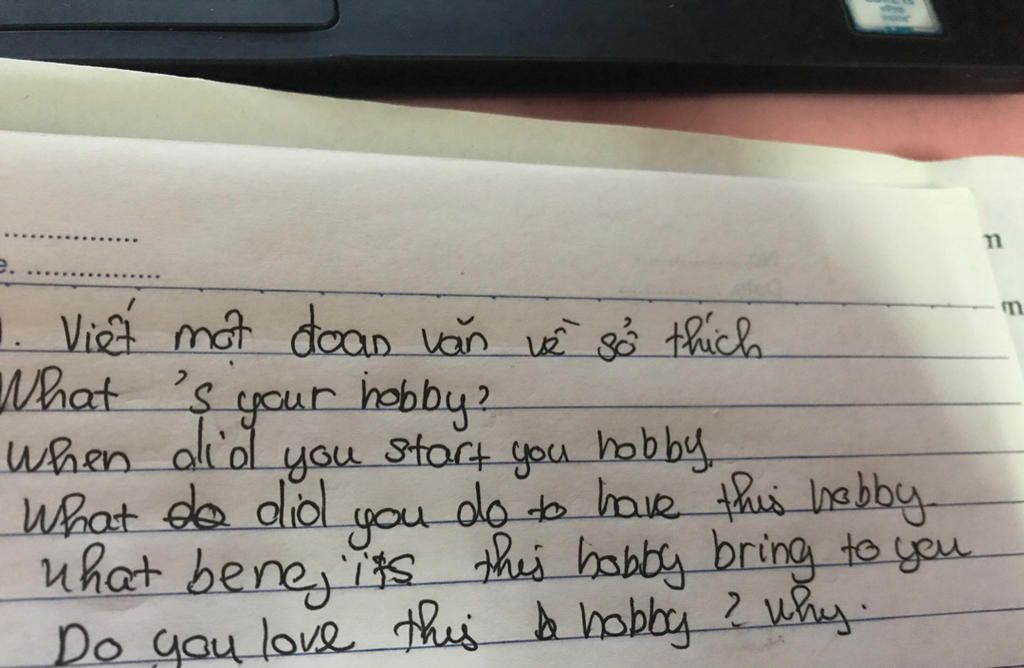 n
e. ...............
m
. Viết một đoạn văn về sở thích
What 's your hobby?
When did you start you hobby.
What do did you do to have this hobby.
what benefits this hobby bring to you
Do you love this h hobby ? why.